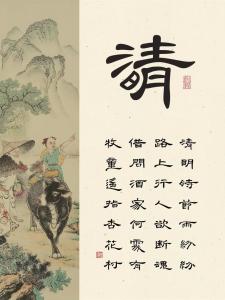 清
清明時節雨紛紛
路上行人欲斷魂
借問酒家何處有
牧童遙指杏花村